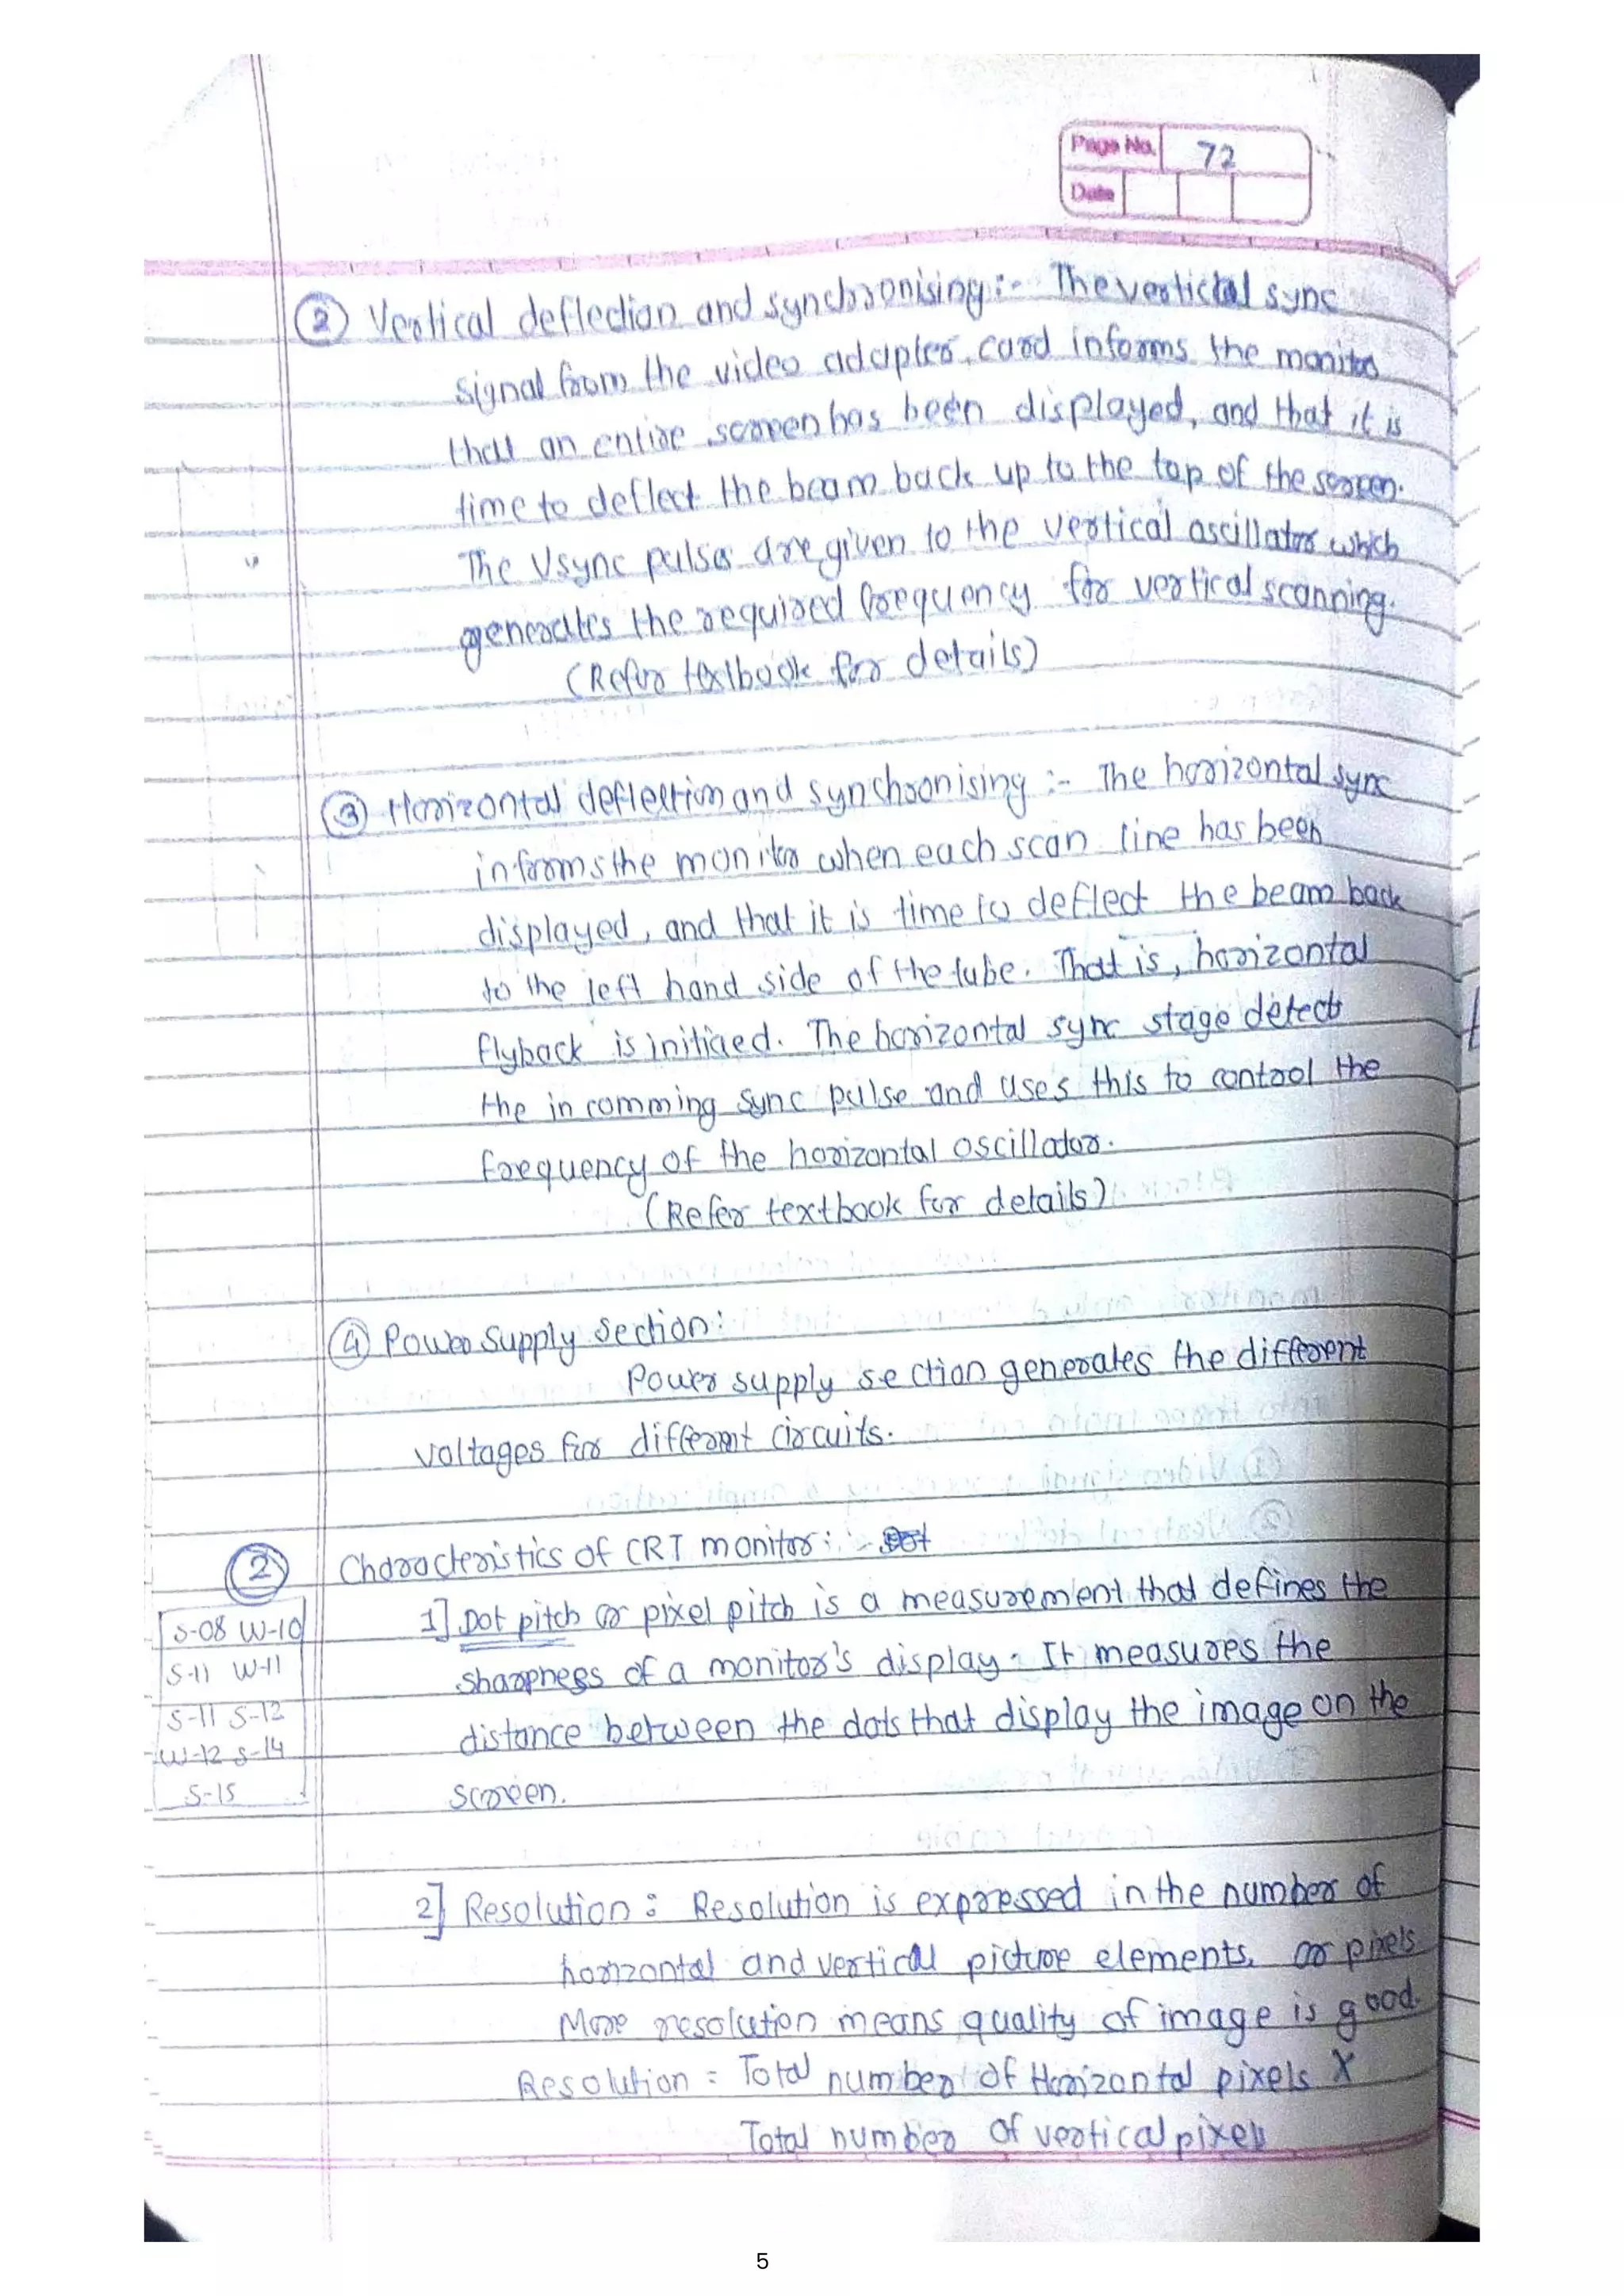 Page No. 72
Date
② Vertical deflection and synchronising :- The vertictal sync
signal from the video adapter, card informs the monitor
that an entire screen has been displayed, and that it is
time to deflect the beam back up to the top of the screen.
The Vsync pulses are given to the vertical oscillator which
generates the required frequency for vertical scanning.
(Refer textbook for details)
③ Horizontal deflection and synchronising :- The horizontal sync
informs the monitor when each scan line has been
displayed, and that it is time to deflect the beam back
to the left hand side of the tube. That is, horizontal
flyback is initiaed. The horizontal sync stage detects
the in comming sync pulse and uses this to control the
frequency of the horizontal oscillator.
(Refer textbook for details)
④ Power Supply Section:
Power supply section generates the different
voltages for different circuits.
② Characteristics of CRT monitor: :-
1] Dot pitch or pixel pitch is a measurement that defines the
S-08 W-10
sharpness of a monitor's display. It measures the
S-11 W-11
distance between the dots that display the image on the
S-11 S-12
W-12 S-14
screen.
S-15
2] Resolution : Resolution is expressed in the number of
horizontal and vertical picture elements, or pixels
More resolution means quality of image is good.
Resolution = Total number of Horizontal pixels X
Total number of vertical pixels
5